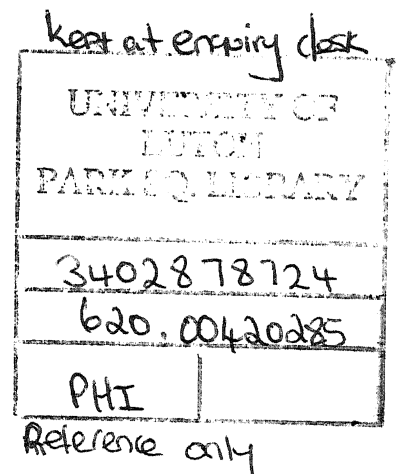 kept at enquiry desk
UNIVERSITY OF
LUTON
PARK SQ. LIBRARY
3402878724
620.00420285
PHI
Reference only